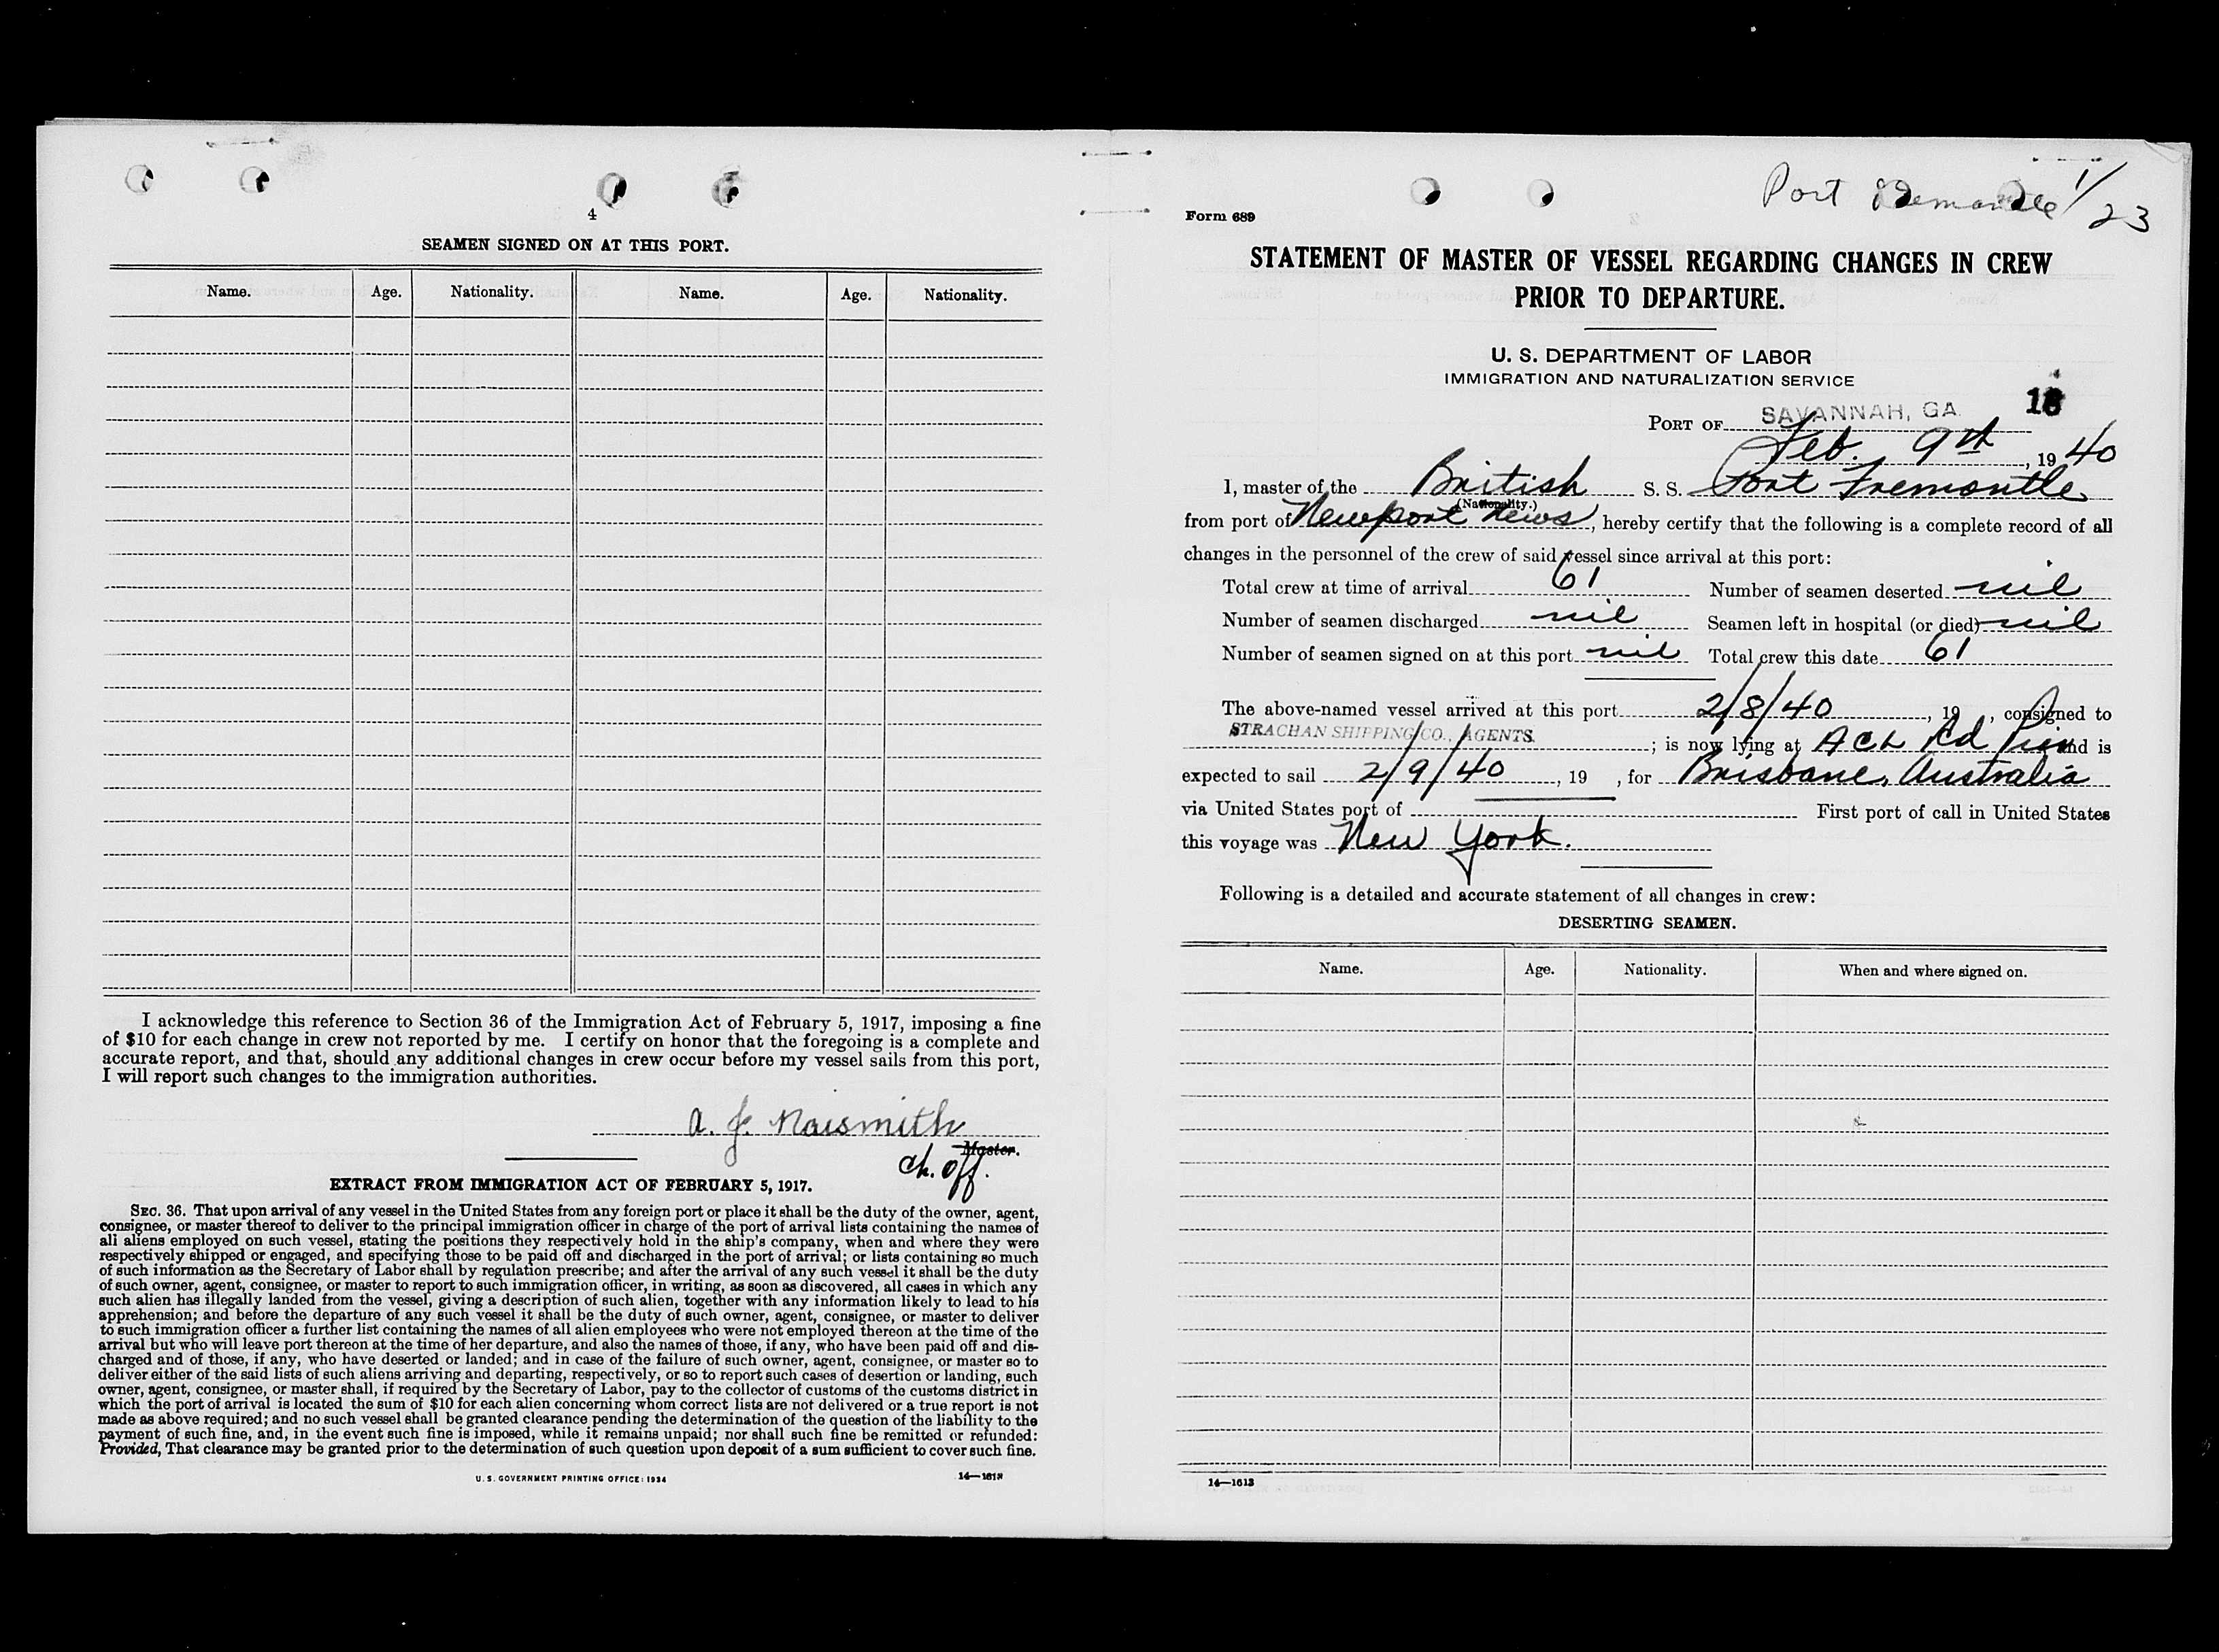 4
SEAMEN SIGNED ON AT THIS PORT.
Name. Age. Nationality. Name. Age. Nationality.
I acknowledge this reference to Section 36 of the Immigration Act of February 5, 1917, imposing a fine
of $10 for each change in crew not reported by me. I certify on honor that the foregoing is a complete and
accurate report, and that, should any additional changes in crew occur before my vessel sails from this port,
I will report such changes to the immigration authorities.
A. J. Naismith
Master.
Ch. off.
EXTRACT FROM IMMIGRATION ACT OF FEBRUARY 5, 1917.
SEC. 36. That upon arrival of any vessel in the United States from any foreign port or place it shall be the duty of the owner, agent,
consignee, or master thereof to deliver to the principal immigration officer in charge of the port of arrival lists containing the names of
all aliens employed on such vessel, stating the positions they respectively hold in the ship's company, when and where they were
respectively shipped or engaged, and specifying those to be paid off and discharged in the port of arrival; or lists containing so much
of such information as the Secretary of Labor shall by regulation prescribe; and after the arrival of any such vessel it shall be the duty
of such owner, agent, consignee, or master to report to such immigration officer, in writing, as soon as discovered, all cases in which any
such alien has illegally landed from the vessel, giving a description of such alien, together with any information likely to lead to his
apprehension; and before the departure of any such vessel it shall be the duty of such owner, agent, consignee, or master to deliver
to such immigration officer a further list containing the names of all alien employees who were not employed thereon at the time of the
arrival but who will leave port thereon at the time of her departure, and also the names of those, if any, who have been paid off and dis-
charged and of those, if any, who have deserted or landed; and in case of the failure of such owner, agent, consignee, or master so to
deliver either of the said lists of such aliens arriving and departing, respectively, or so to report such cases of desertion or landing, such
owner, agent, consignee, or master shall, if required by the Secretary of Labor, pay to the collector of customs of the customs district in
which the port of arrival is located the sum of $10 for each alien concerning whom correct lists are not delivered or a true report is not
made as above required; and no such vessel shall be granted clearance pending the determination of the question of the liability to the
payment of such fine, and, in the event such fine is imposed, while it remains unpaid; nor shall such fine be remitted or refunded:
Provided, That clearance may be granted prior to the determination of such question upon deposit of a sum sufficient to cover such fine.
U. S. GOVERNMENT PRINTING OFFICE: 1934 14—1613
Port Fremantle 1/23
Form 689
STATEMENT OF MASTER OF VESSEL REGARDING CHANGES IN CREW
PRIOR TO DEPARTURE.
U. S. DEPARTMENT OF LABOR
IMMIGRATION AND NATURALIZATION SERVICE
PORT OF SAVANNAH, GA.
Feb. 9th, 19 40
I, master of the British S. S. Port Fremantle
(Nationality.)
from port of Newport News, hereby certify that the following is a complete record of all
changes in the personnel of the crew of said vessel since arrival at this port:
Total crew at time of arrival 61 Number of seamen deserted nil
Number of seamen discharged nil Seamen left in hospital (or died) nil
Number of seamen signed on at this port nil Total crew this date 61
The above-named vessel arrived at this port 2/8/40, 19 , consigned to
STRACHAN SHIPPING CO., AGENTS. ; is now lying at A C L Rd Pier and is
expected to sail 2/9/40, 19 , for Brisbane, Australia
via United States port of First port of call in United States
this voyage was New York.
Following is a detailed and accurate statement of all changes in crew:
DESERTING SEAMEN.
Name. Age. Nationality. When and where signed on.
14—1613